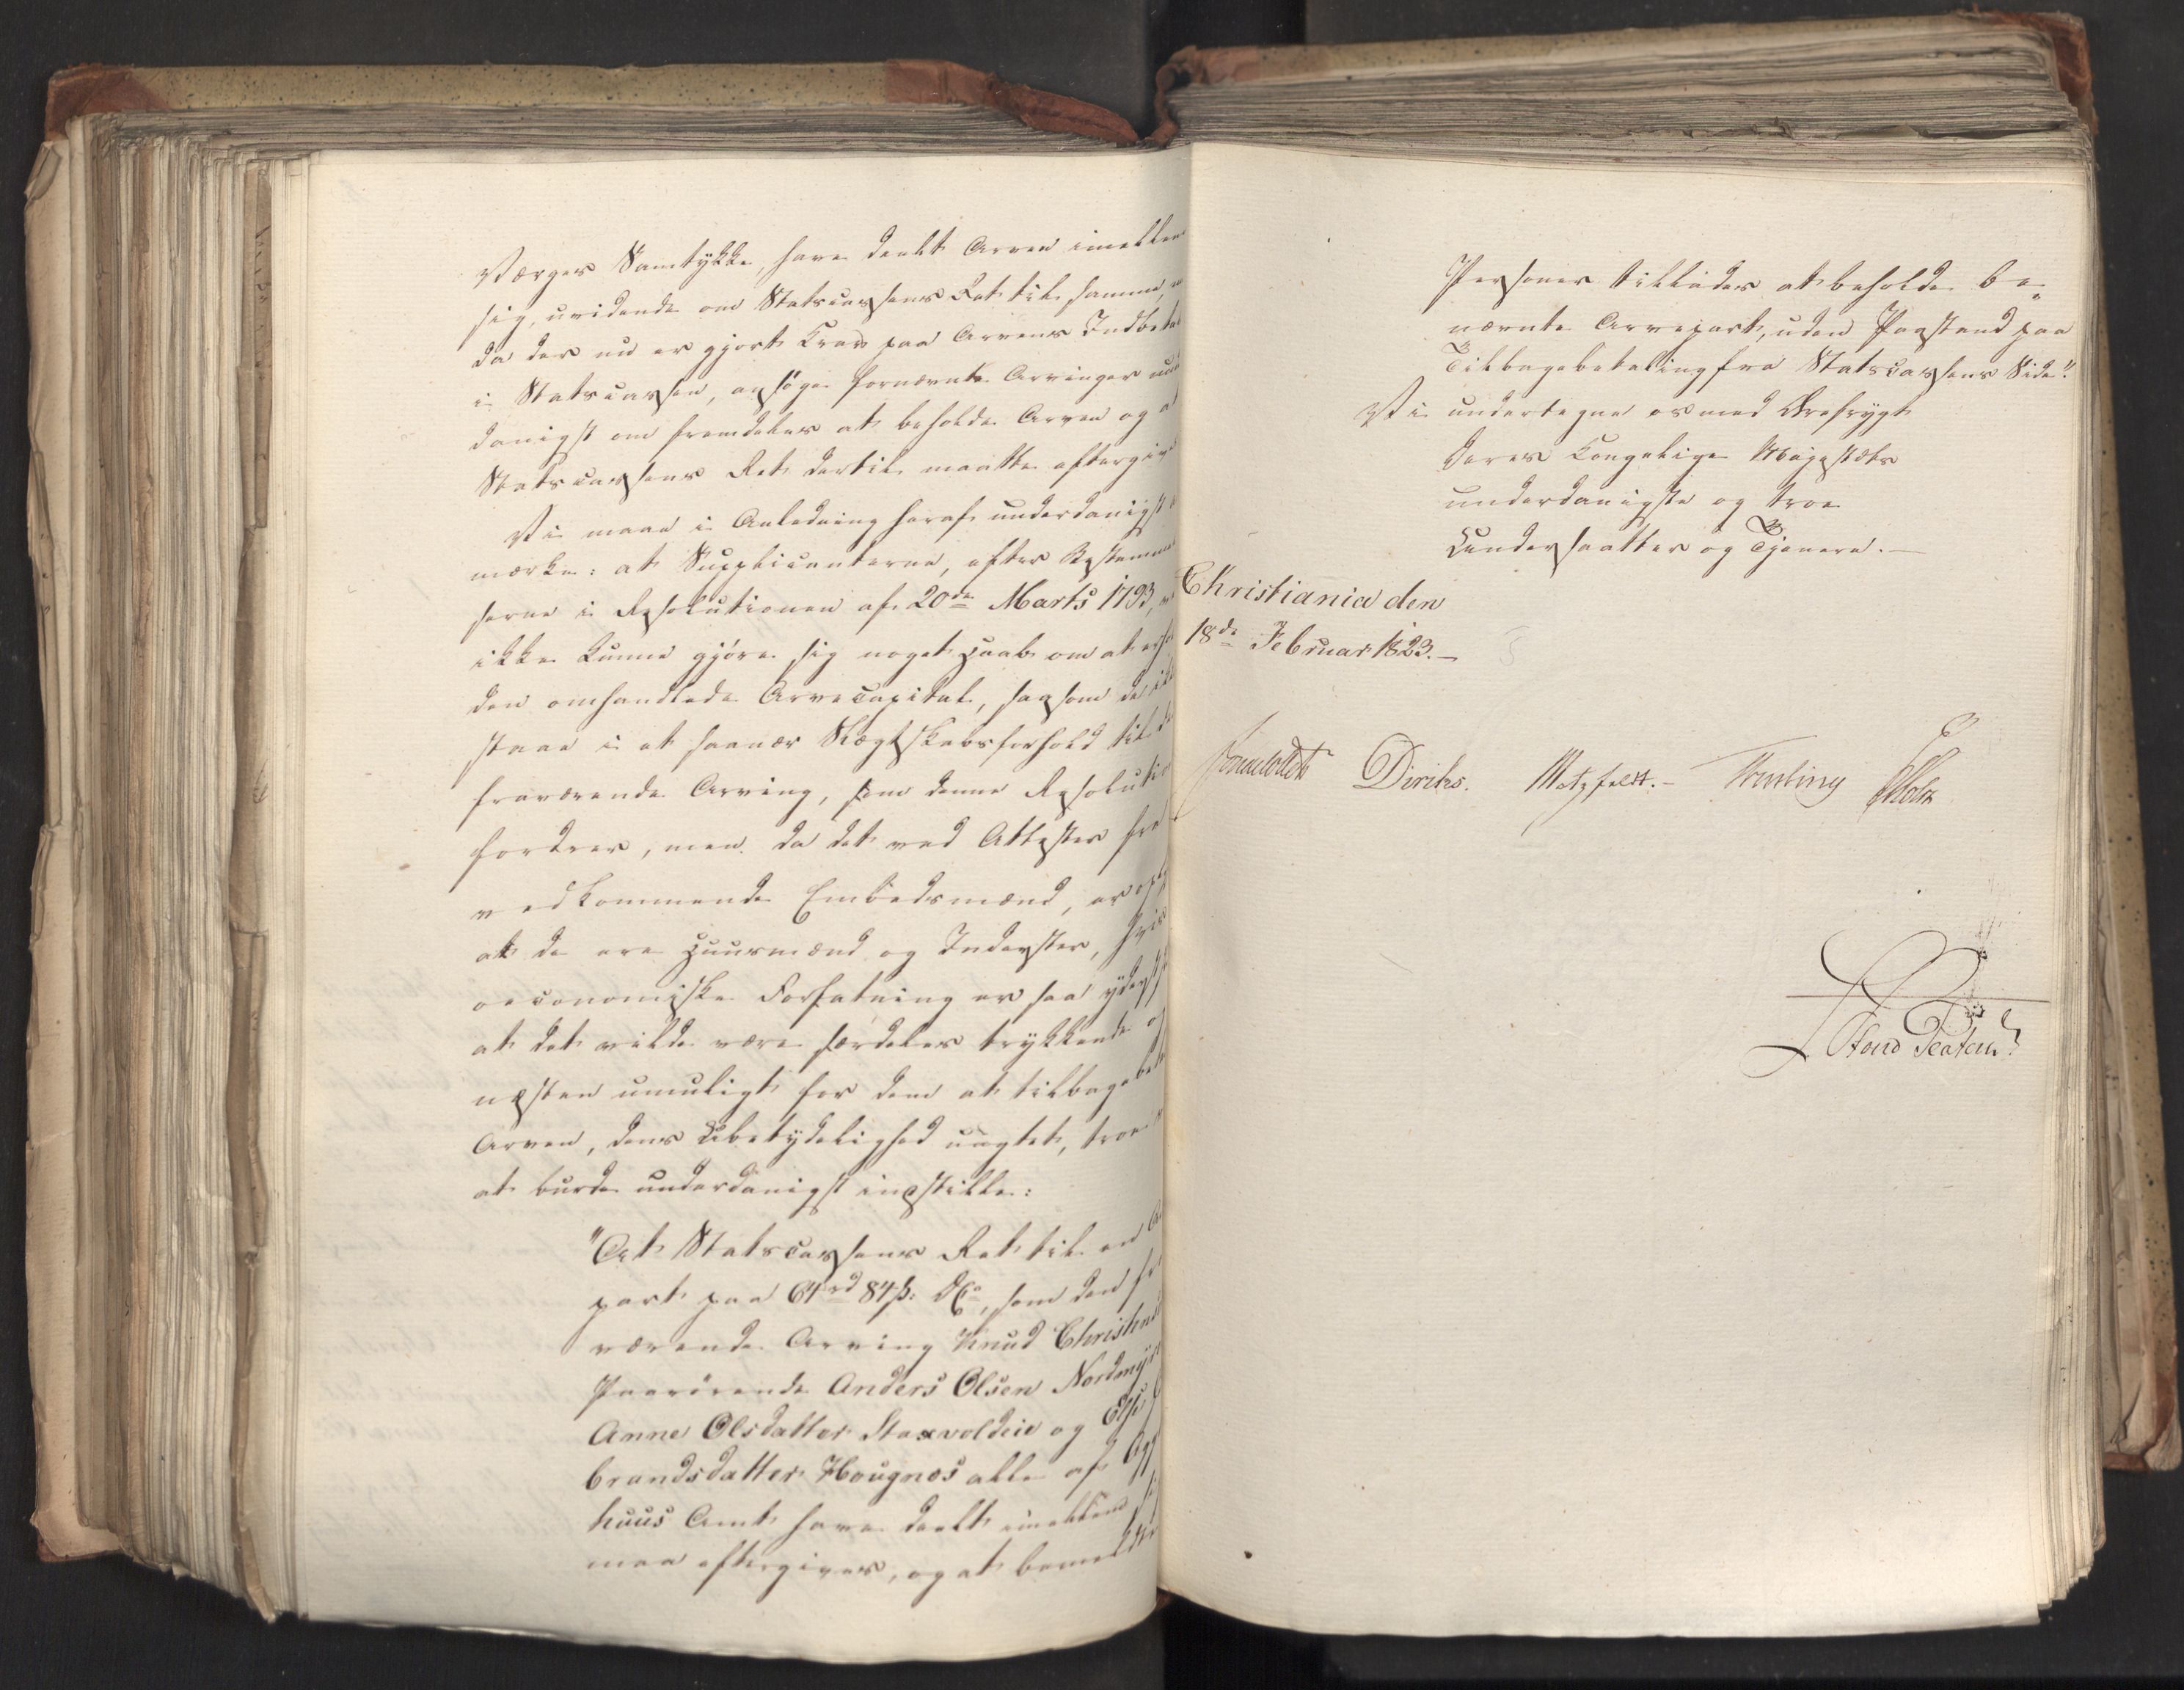 Værges Samtykke, have deelt Arven imellem
sig, uvidende om Statscassens Ret til samme,
da der nu er gjort Krav paa Arvens Indbeta
i Statscassen, ansøge fornævnte Arvinger un
danigst om fremdeles at beholde Arven og at
Statscassens Ret dertil maatte eftergives
Vi maae i Anledning heraf underdanigst
mærke: at Supplicanterne, efter Bestemmel
serne i Resolutionen af 20de Marts 1793,
ikke kunne gjøre sig noget Haab om at erh
den omhandlede Arvecapital, saasom de ikke
staae i et saa nær Slægtskabsforhold til den
fraværende Arving, som denne Resolution
fordrer, men da det ved Attester fra
vedkommende Embedsmænd, er opl
at de ere Huusmænd og Inderster, hvis
oeconomiske Forfatning er saa yderst
at det vilde være særdeles trykkende og
næsten umuligt for dem at tilbagebetale
Arven, dens Ubetydelighed uagtet, troe
at burde underdanigst indstille:
"At Statscassens Ret til en Ar
part paa 64rd 84s: DC, som den fra
værende Arving Knud Christens
Paarørende Anders Olsen Nordmyr
Anne Olsdatter Staxvoldeie og Else
brandsdatter Hougnæs alle af Agg
huus Amt have deelt imellem sig
maa eftergives, og at bemeldte
Personer tillades at beholde be-
nævnte Arvepart, uden Paastand paa
Tilbagebetaling fra Statscassens Side".
Vi undertegne os med Ærefrygt
Deres Kongelige Majestæts
underdanigste og troe
Undersaatter og Tjenere.
Christiania den
18de Februar 1823.
Diriks. Motzfeldt. Treschow Holst